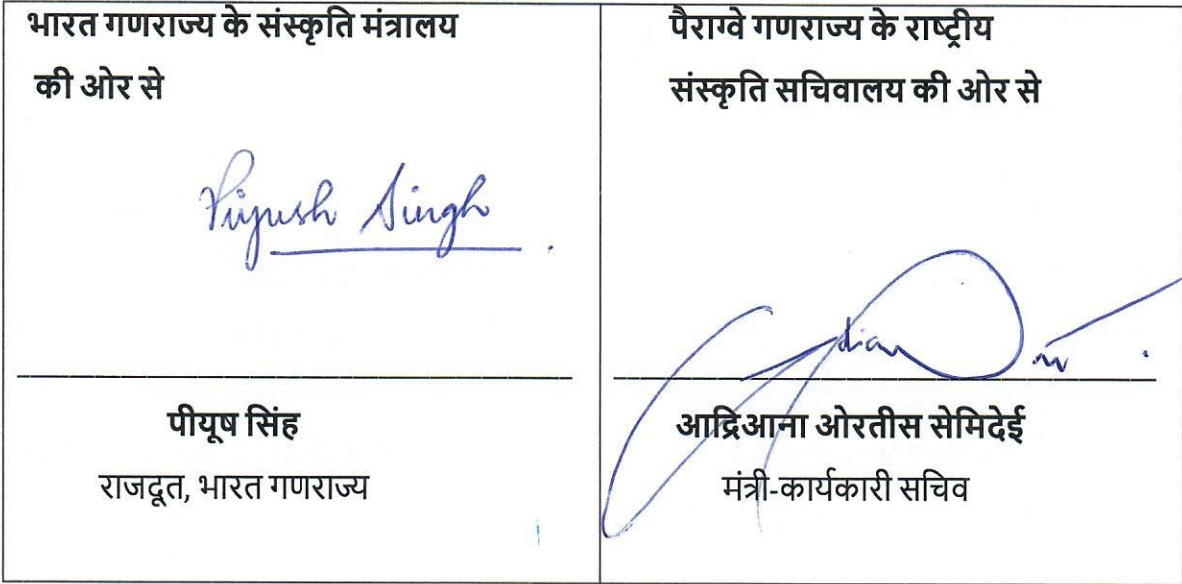 भारत गणराज्य के संस्कृति मंत्रालय
की ओर से
Piyush Singh
पीयूष सिंह
राजदूत, भारत गणराज्य
पैराग्वे गणराज्य के राष्ट्रीय
संस्कृति सचिवालय की ओर से
आद्रिआना ओरतीस सेमिदेई
मंत्री-कार्यकारी सचिव